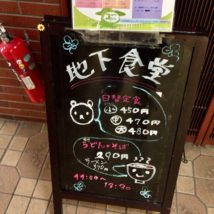 地下食堂
日替定食
小 450円
中 470円
大 480円
うどん・そば
290円
ラーメン